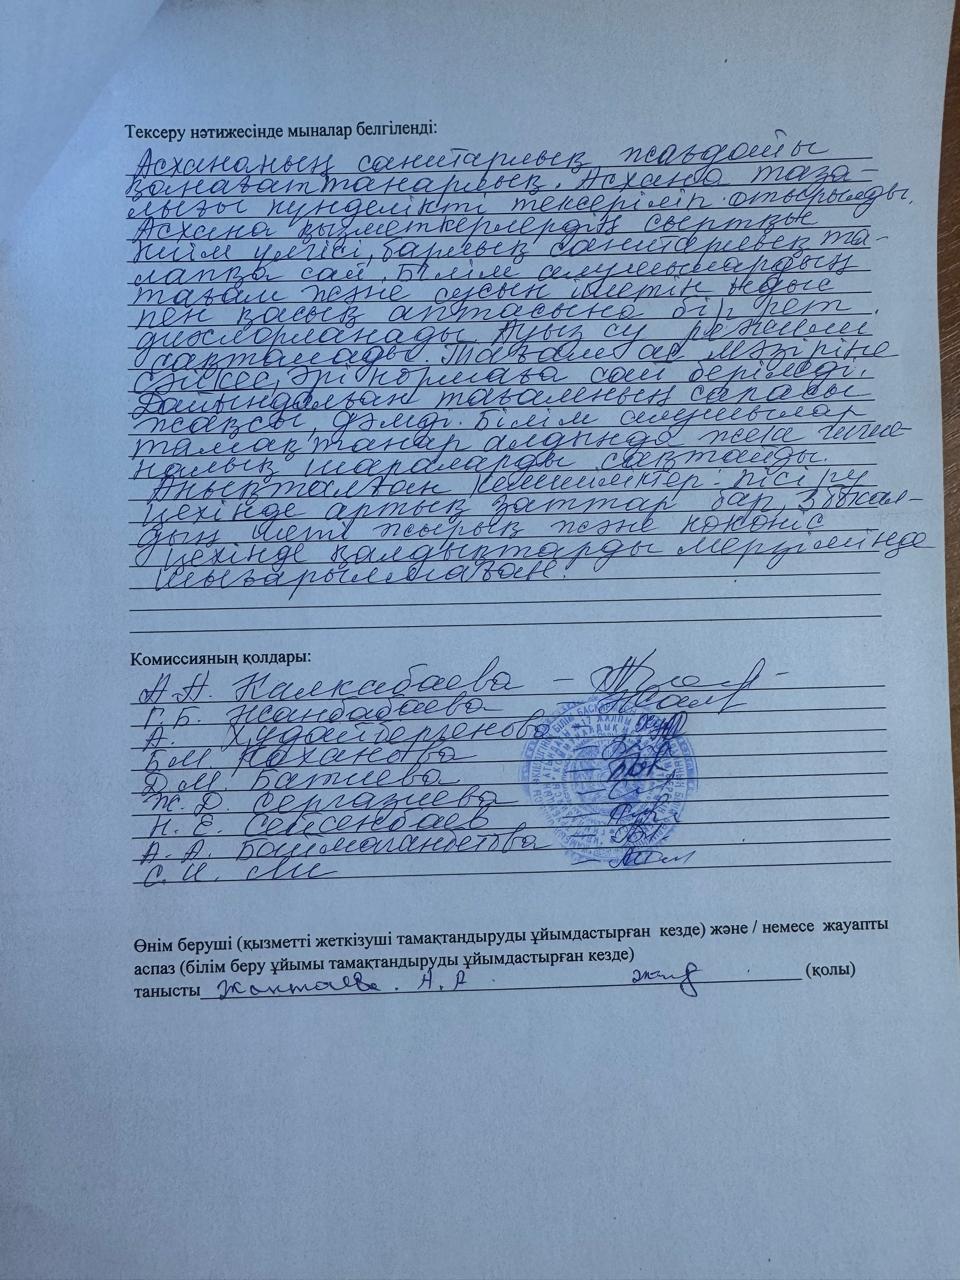 Тексеру нәтижесінде мыналар белгіленді:
Асхананың санитарлық жағдайы
қанағаттанарлық. Асхана таза-
лығы күнделікті тексеріліп отырылды.
Асхана қызметкерлердің сыртқы
киім үлгісі, барлық санитарлық та-
лапқа сай. Білім алушылардың
тағам және сусын ішетін ыдыс
пен қасық аптасына бір рет
дихлорланады. Ауыз су режимі
сақталады. Тағам ас мәзіріне
сәйкес, әрі нормаға сай беріледі.
Дайындалған тағамның сапасы
жақсы, дәмді. Білім алушылар
тамақтанар алдында жеке гигие-
налық шараларды сақтайды.
Анықталған кемшіліктер - пісіру
цехінде артық заттар бар, 3 бокал-
дың шеті жырық және көкөніс
цехінде қалдықтарды мерзімінде
шығарылмаған.
Комиссияның қолдары:
А.А. Калкабаева
Г.Б. Жанбабаева
А. Худайбергенова
Б.М. Коханова
Д.М. Батиева
Ж.Д. Сергазиева
Н.Е. Сейсенбаев
А.А. Баймаганбетова
С.И. Ли
Өнім беруші (қызметті жеткізуші тамақтандыруды ұйымдастырған кезде) және / немесе жауапты
аспаз (білім беру ұйымы тамақтандыруды ұйымдастырған кезде)
танысты А.А. (қолы)